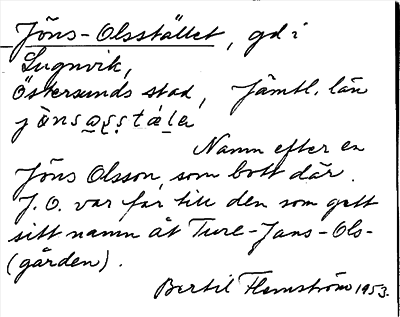 Jöns-Olsstället, gd i
Lugnvik,
Östersunds stad, Jämtl. län
Namn efter en
Jöns Olsson, som bott där.
J. O. var far till den som gett
sitt namn åt Ture-Jans-Ols-
(gården).
Bertil Flemström 1953.